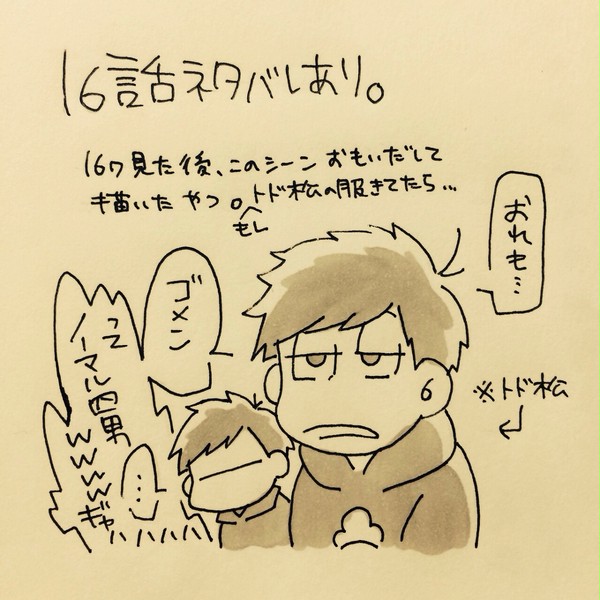 16話ネタバレあり。
16ワ見た後、このシーン おもいだして
描いた やつ。トド松の服きてたら…
もし
おれも…
ゴメン
って
ノーマル四男
wwww
ギャハハハハハ
…
6
※トド松